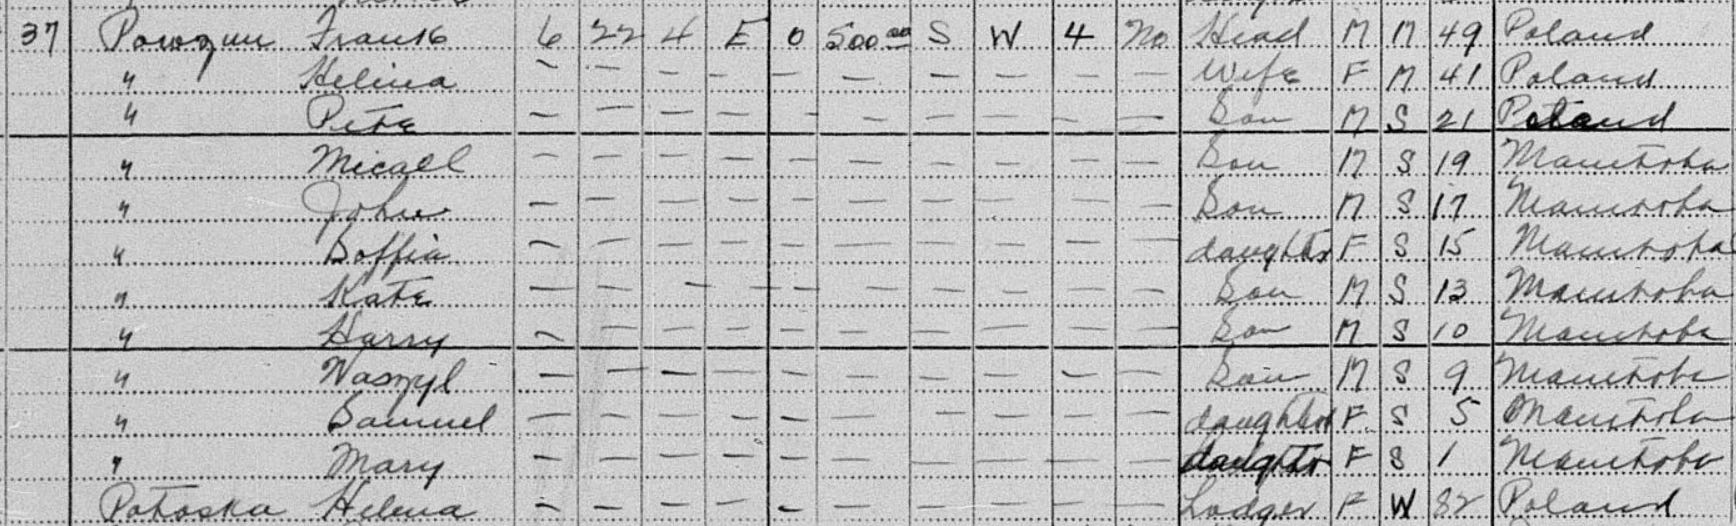 37 Powozun Frank 6 22 4 E 0 500.00 S W 4 No Head M M 49 Poland
" Helina - - - - - - - - - - Wife F M 41 Poland
" Pete - - - - - - - - - - Son M S 21 Poland
" Micaell - - - - - - - - - - Son M S 19 Manitoba
" John - - - - - - - - - - Son M S 17 Manitoba
" Soffia - - - - - - - - - - daughter F S 15 Manitoba
" Kate - - - - - - - - - - Son M S 13 Manitoba
" Harry - - - - - - - - - - Son M S 10 Manitoba
" Waszyl - - - - - - - - - - Son M S 9 Manitoba
" Samuel - - - - - - - - - - daughter F S 5 Manitoba
" Mary - - - - - - - - - - daughter F S 1 Manitoba
Potoska Helena - - - - - - - - - - Lodger F W 82 Poland